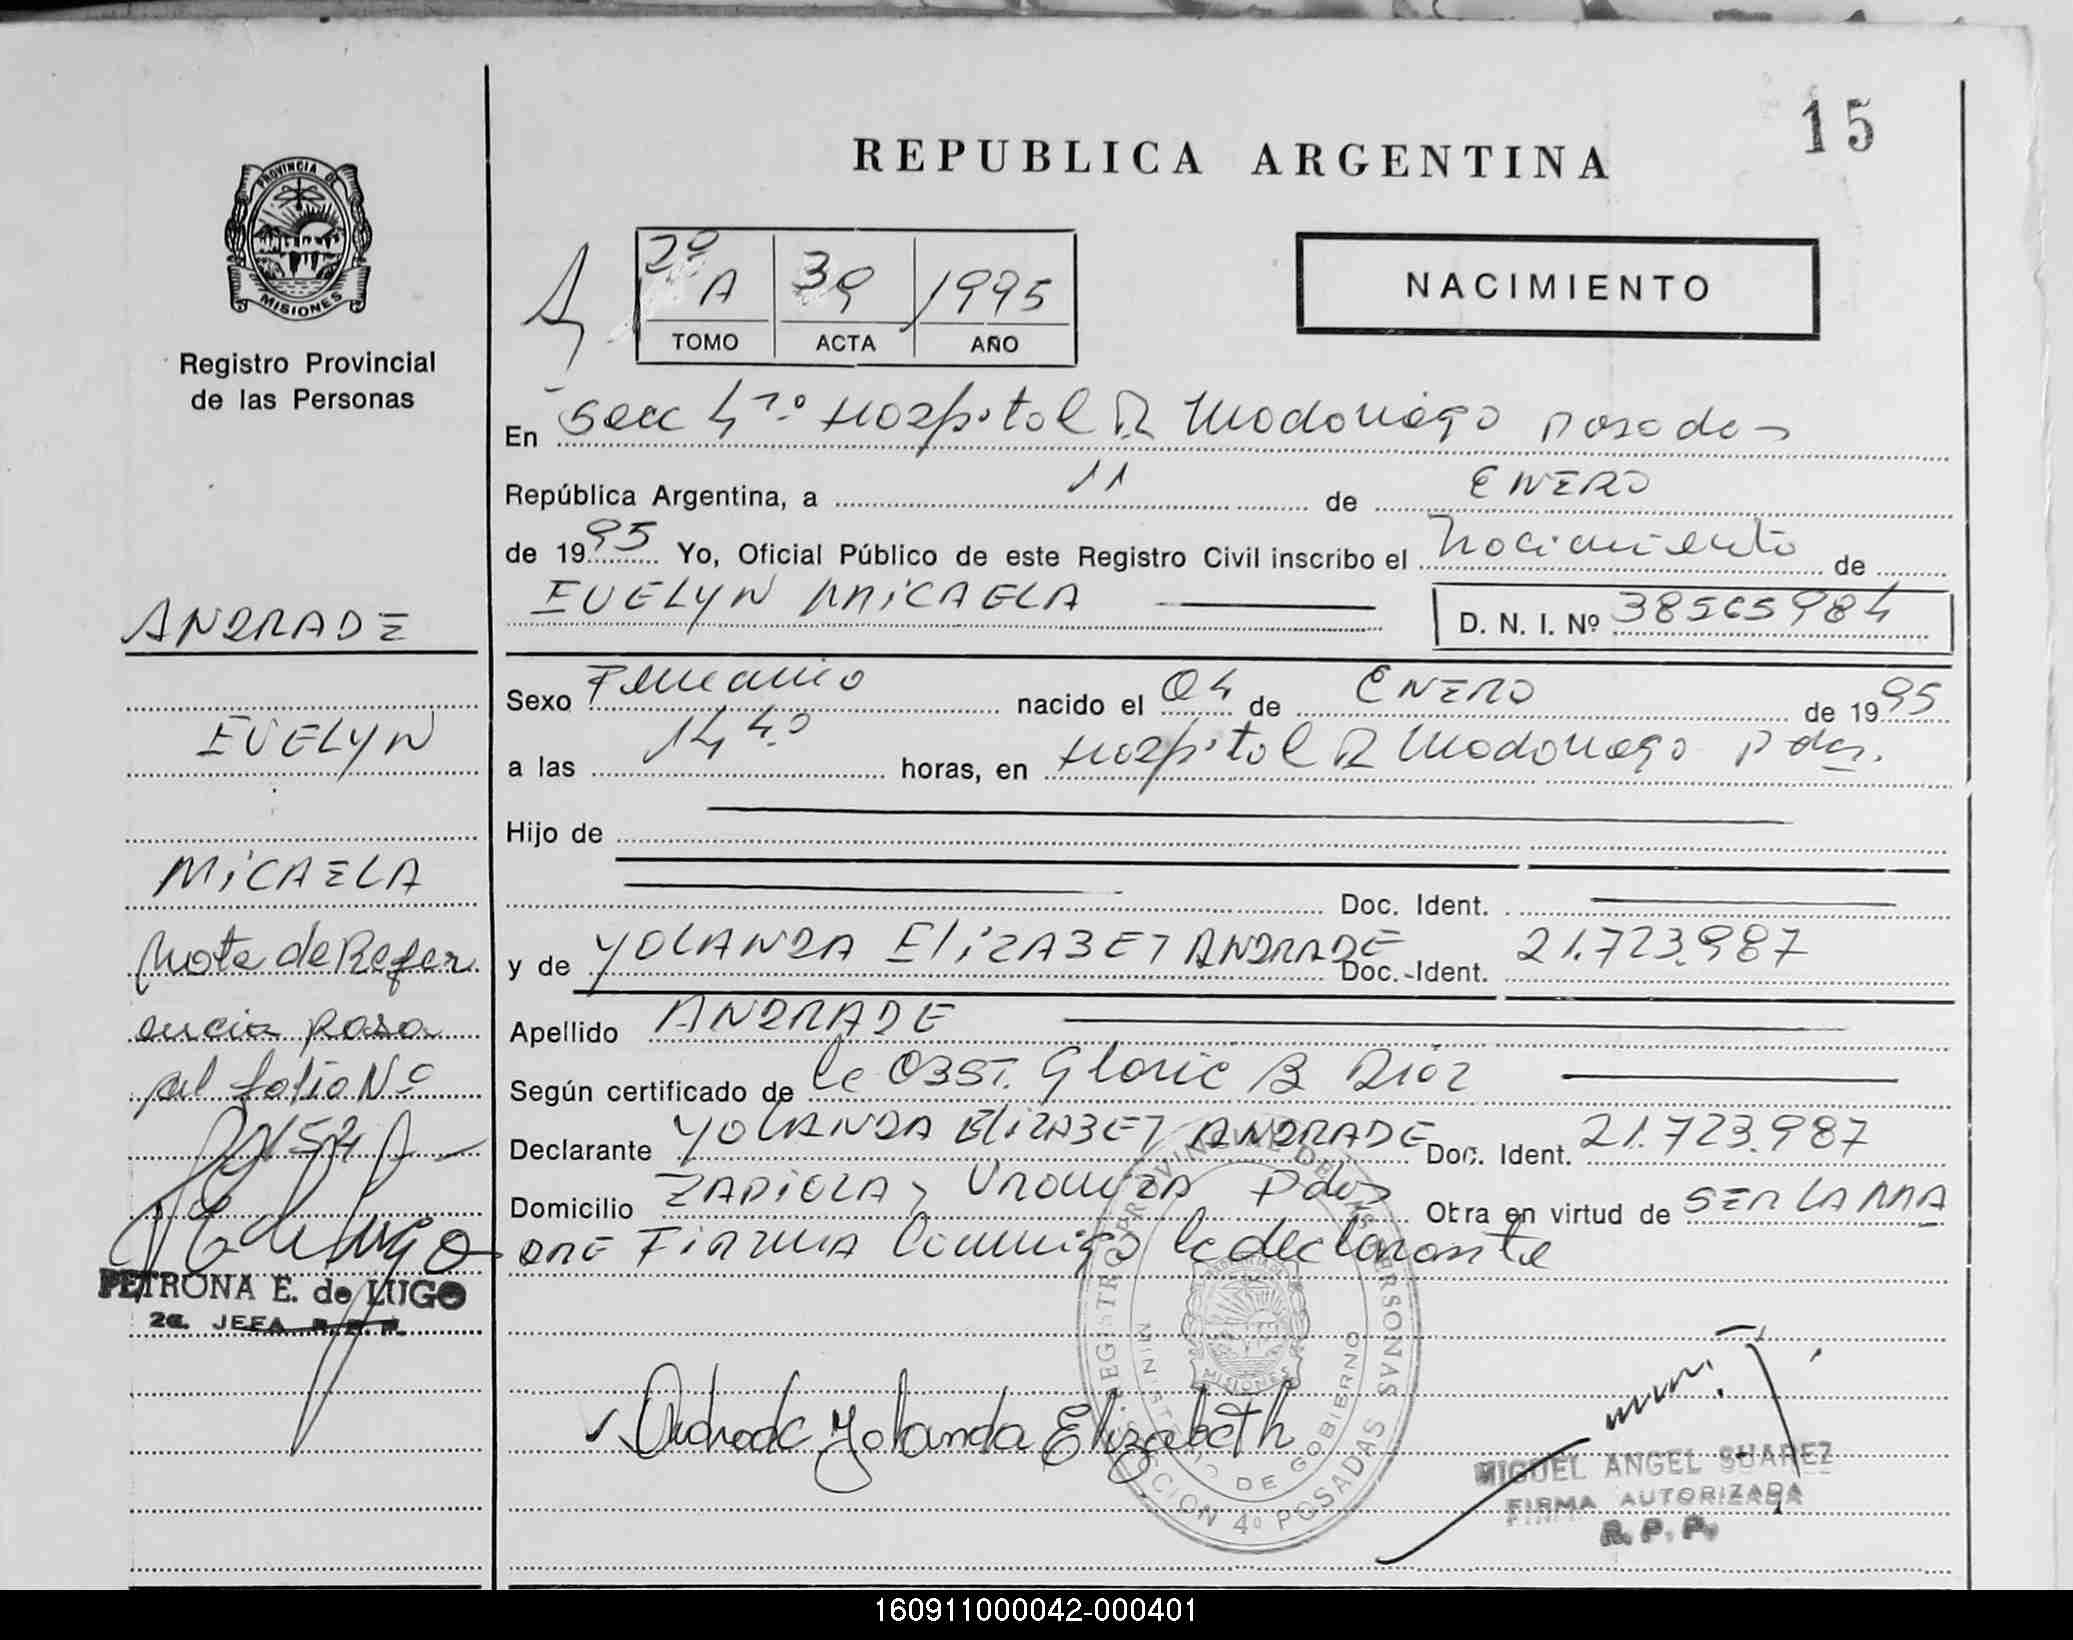 15
REPUBLICA ARGENTINA
PROVINCIA DE
MISIONES
Registro Provincial
de las Personas
2º A 39 1995
TOMO ACTA AÑO
NACIMIENTO
En Secc 4ta. Hospital R Madariaga Posadas
República Argentina, a 11 de ENERO
de 1995 Yo, Oficial Público de este Registro Civil inscribo el Nacimiento de
EVELYN MICAELA D. N. I. Nº 38565984
ANDRADE
EVELYN
MICAELA
Nota de Refer
encia pasa
al folio Nº
PETRONA E. de LUGO
2a. JEFA R.P.P.
Sexo Femenino nacido el 04 de ENERO de 1995
a las 14,40 horas, en Hospital R Madariaga Pdas.
Hijo de
Doc. Ident.
y de YOLANDA ELIZABET ANDRADE Doc. Ident. 21.723.987
Apellido ANDRADE
Según certificado de la OBST. Gloria B Diaz
Declarante YOLANDA ELIZABET ANDRADE Doc. Ident. 21.723.987
Domicilio ZAPIOLA y URQUIZA Pdas Obra en virtud de SER LA MA
DRE FIRMA Conmigo la declarante
REGISTRO PROVINCIAL DE LAS PERSONAS
MINISTERIO DE GOBIERNO
MISIONES
SECCION 4º POSADAS
Andrade Yolanda Elizabeth
MIGUEL ANGEL SUAREZ
FIRMA AUTORIZADA
R. P. P.
160911000042-000401